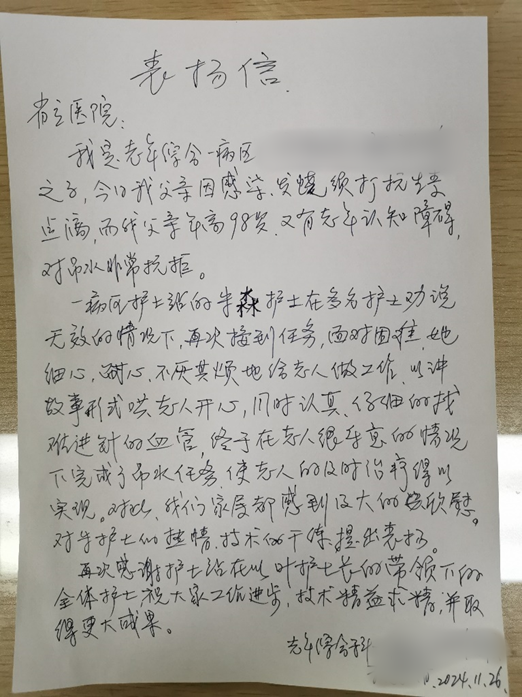 表扬信
省立医院:
我是老年综合一病区
之子,今日我父亲因感染发烧须打抗生素
点滴,而我父亲年高98岁,又有老年认知障碍,
对吊水非常抗拒。
一病区护士站的牛淼护士在多名护士劝说
无效的情况下,再次接到任务,面对困难,她
细心,耐心,不厌其烦地给老人做工作,以讲
故事形式哄老人开心,同时认真、仔细的找
准进针的血管,终于在老人很乐意的情况
下完成了吊水任务,使老人的及时治疗得以
实现。对此,我们家属都感到极大的欣慰。
对牛护士的热情、技术的干练提出表扬。
再次感谢护士站在以叶护士长的带领下的
全体护士,祝大家工作进步,技术精益求精,并取
得更大成果。
老年综合科
2024.11.26